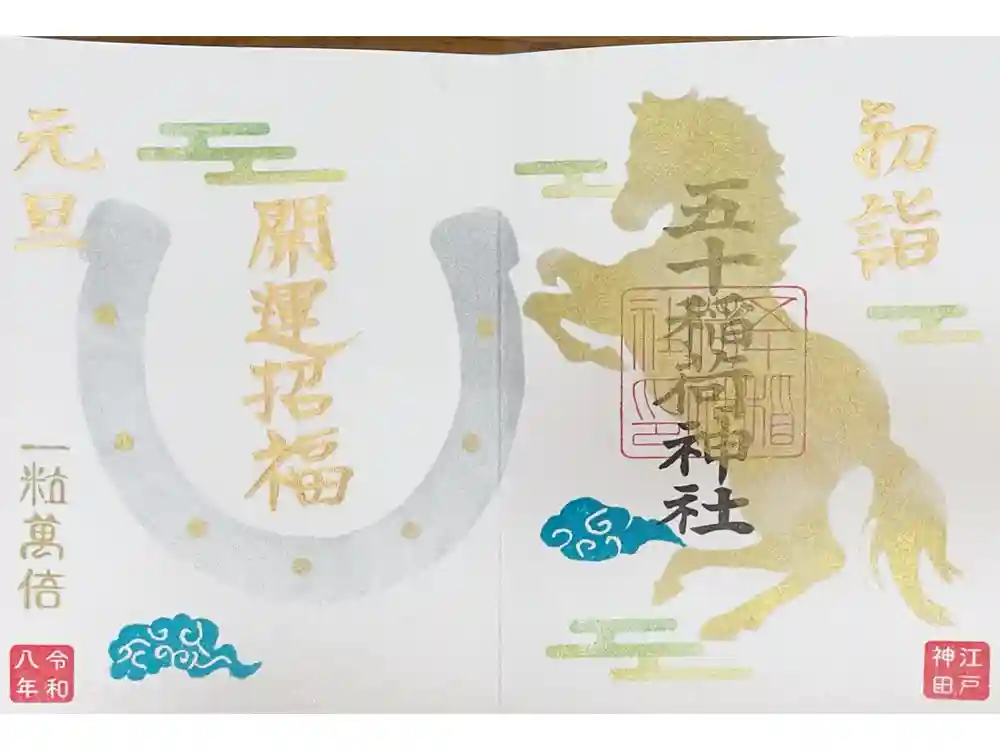 初詣
五十稲荷神社
江戸
神田
開運招福
元旦
一粒萬倍
令和
八年